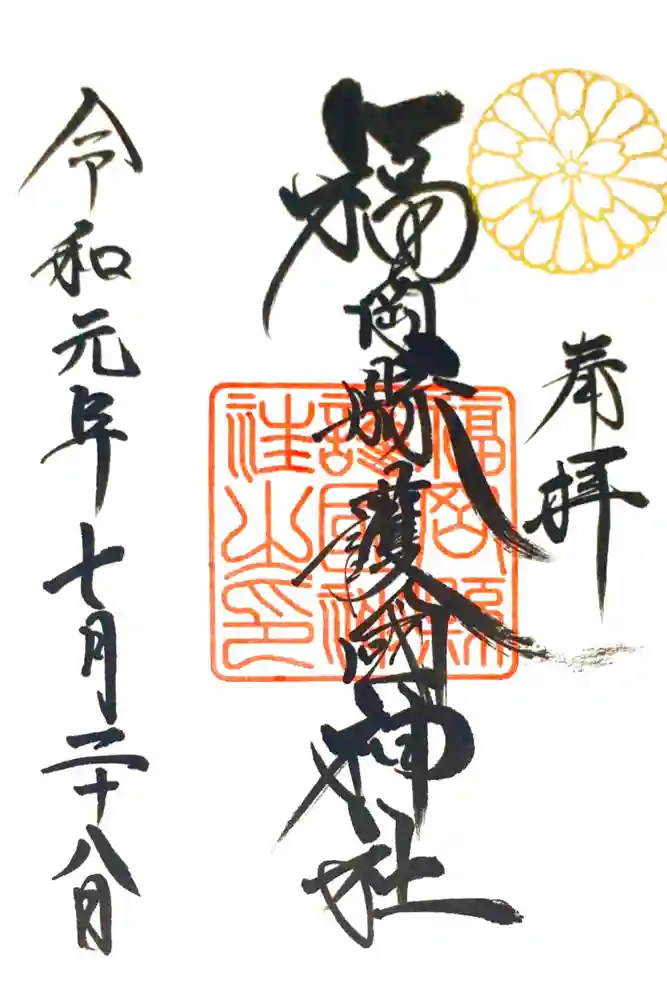 奉拝
福岡縣護國神社
福岡縣
護國神
社之印
令和元年七月二十八日